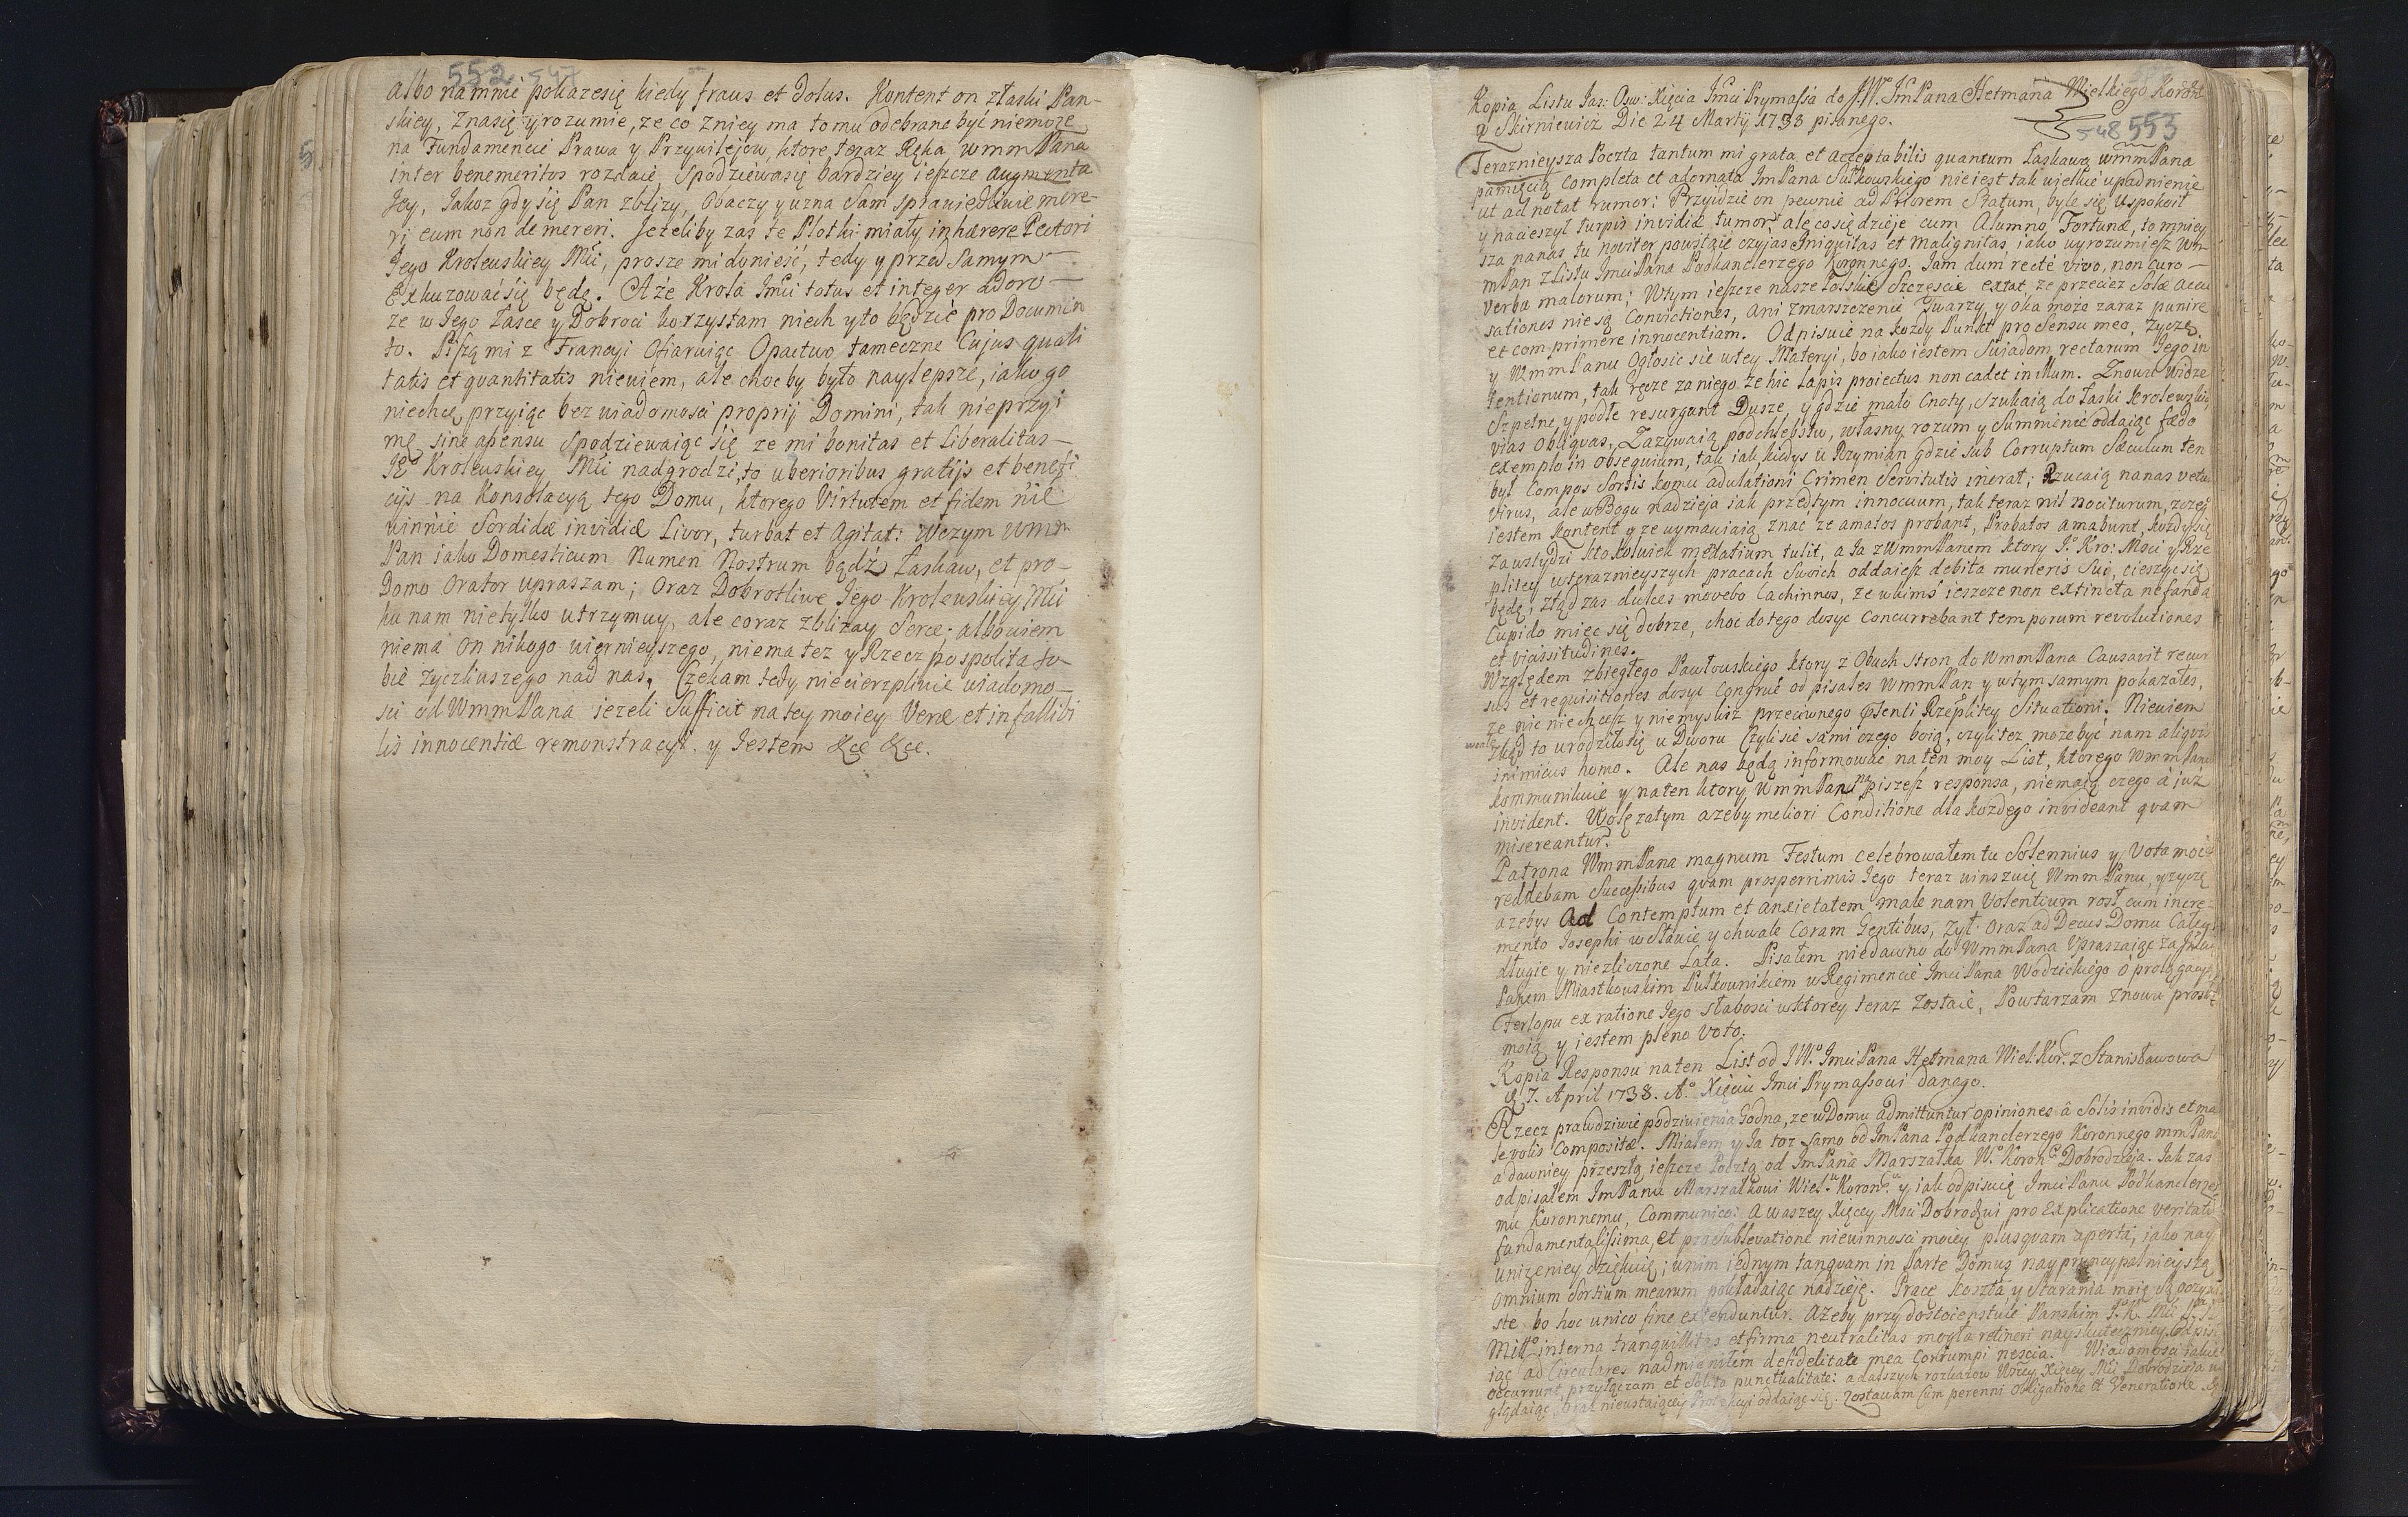 552 547
albo namnie pokazesię kiedy fraus et dolus. Kontent on złaski Pan-
skiey, Znasię y rozumie, ze co zniey ma tomu odebrane być niemoże
na Fundamencie Prawa y Przywilejow, ktore teraz Ręka wmm Pana
inter benemeritos rozdaie, Spodziewasię bardziey ieszcze augmenta
Jey, Jakoz gdy się Pan zblizy, Obaczy y uzna Sam sprawiedliwie mere-
ri eum non demereri. Jezeliby zas te Plotki miały inhærere Pectori
Jego Krolewskiey Mći, prosze mi donieść, tedy y przed Samym
Exkuzować się będę. A że Krola Jmći totus et integer adoro
ze w Jego Łasce y Dobroci korzystam niech y to będzie pro Documen
to. Piszą mi z Francyi Ofiaruiąc Opactwo tameczne Cujus quali
tatis et quantitatis niewiem, ale choćby było naylepsze, iako go
niechcę przyiąc bez wiadomosci proprij Domini, tak nieprzyi
mę sine asensu Spodziewaiąc się ze mi bonitas et Liberalitas
JEo Krolewskiey Mći nadgrodzi to uberioribus gratijs et benefi
cijs na Konsolacyą tego Domu, ktorego Virtutem et fidem nil
winnie Sordidæ invidiæ Livor, turbat et Agitat: Wczym Wmm
Pan iako Domesticum Numen Nostrum bądź Łaskaw, et pro
Domo Orator upraszam; Oraz Dobrotliwe Jego Krolewskiey Mći
ku nam nietylko utrzymuy, ale coraz zblizay Serce; albowiem
niema on nikogo wiernieyszego, niema tez y Rzeczpospolita so
bie zyczliwszego nad nas, Czekam tedy niecierpliwie wiadomo-
sci od WmmPana jezeli Sufficit na tey moiey Veræ et infallibi
lis innocentiæ remonstracyi. y Jestem &c &c.
Kopia Listu Jas: Osw: Xięcia Jmći Prymassa do J.W. JmPana Hetmana Wielkiego Koron
z Skirniewicz Die 24 Martij 1738 pisanego.
548 553
Teraznieysza Poczta tantum mi grata et acceptabilis quantum Łaskawą wmmPana
pamięcią completa et adornata JmPana Sułkowskiego nieiest tak wielkie upadnienie
ut ad notat rumor: Przyidzie on pewnie ad Priorem Statum, byle się uspokoit
y nacieszył turpis invidiæ tumor, ale cosię dzieje cum Alumno Fortunæ, to mniey
sza nanas tu noviter powstaie czyjas Iniquitas et malignitas iako wyrozumiesz Wm
mPan z Listu JmćiPana Podkanclerzego Koronnego. Jam dum recté vivo, non curo
verba malorum; Wtym ieszcze nasze Polskie Szczęscie extat, ze przeciez Solæ accu
sationes nie są Convictiones, ani zmarszczenie Twarzy, y oka może zaraz punire
et comprimere innocentiam. Odpisuie na kozdy Punkt pro Sensu meo, zyczę
y WmmPanu Ogłosić sie wtey Materyi, bo iako iestem Swiadom rectarum Jego in
tentionum, tak ręcze za niego ze hic Lapis proiectus non cadet in Illum. Znowu widze
Szpetne, y podłe resurgunt Dusze, y gdzie mało Cnoty, Szukaią do Łaski krolewskiey
vias obliquas, Zazywaią podchlebstw, własny rozum y Summienie oddaiąc fædo
exemplo in obsequium, tak iak kiedys u Rzymian gdzie sub Corruptum Sæculum ten
był Compos Sortis komu adulationi Crimen Servitutis inerat; Rzucaią nanas vetus
Virus, ale w Bogu nadzieja iak przedtym innocuum, tak teraz nil nociturum, zczego
iestem kontent y ze wymawiaią, znać ze amatos probant, Probatos amabunt, kozdy się
zawstydzi ktokolwiek mendatium tulit, a Ja z WmmPanem ktory Jo Kro: Mści y Rze
plitey wteraznieyszych pracach Swoich oddaiesz debita muneris Sui, cieszyc się
będę; ztąd zas dulces movebo Cachinnos, ze wkimś ieszcze non extincta nefanda
Cupido miec się dobrze, choc dotego dosyc Concurrebant temporum revolutiones
et vicissitudines.
Względem zbiegłego Pawłowskiego ktory z Obuch stron do WmmPana Causavit recur
sus et requisitiones dosyc Congrué odpisałes WmmPan y wtym samym pokazałes,
ze nic niechcesz y niemyslisz przeciwnego Pseti Rzeplitey Situationi. Niewiem
zkąd to urodziłosię u Dworu Czyli sie sami czego boią, czyli tez może być nam aliquis
inimicus homo. Ale nas będą informować na ten moy List, ktorego WmmPanu
kommunikuie y na ten ktory WmmPan piszesz responsa, niemaią czego a już
invident. Wolę zatym azeby meliori Conditione dla kozdego invideant quam
misereantur.
Patrona WmmPana magnum Festum celebrowałem tu Solennius y Vota moie
reddebam Successibus quam prosperrimis Jego teraz winszuię WmmPanu, y zyczę
azebys Ad Contemptum et anxietatem male nam Volentium rosł cum incre-
mento Josephi w Sławie y chwale Coram Gentibus, Zył Oraz ad Decus Domu Całego
długie y niezliczone Lata. Pisałem niedawno do WmmPana Upraszaiąc za Jmć
Panem Miastkowskim Pułkownikiem w Regimencie JmćiPana Wodzickiego o prolągacyą
Ferlopu ex ratione Jego słabosci wktorey teraz zostaie, Powtarzam znowu prosbę
moią y iestem pleno voto.
Kopia Responsu na ten List od J Wo JmćiPana Hetmana Wiel: Kor: z Stanisławowa
D 7. April 1738. Ao Xięciu Jmći Prymassowi danego.
Rzecz prawdziwie podziwienia Godna, ze w Domu admittuntur opiniones â Solis invidis et ma
levolis Compositæ. Miałem y Ja toz samo od JmPana Podkanclerzego Koronnego mmPana
a dawniey przeszłą ieszcze Pocztą od JmPana Marszałka Wo Koron Dobrodzieja. Jak zas
odpisałem JmPanu Marszałkowi Wiel. Koron. y iak odpisuię JmćiPanu Podkanclerze
mu Koronnemu, Communico: a waszey Xięcey Mści Dobrodziwi pro Explicatione veritatis
fundamentalissima, et pro Sublevatione niewinnosci moiey plusquam aperta, iako nay
unizeniey dziękuię; wnim iednym tanquam in Parte Domus naypryncypalnieyszą
omnium Sortium mearum pokładaiąc nadzieję. Prace koszta y starania moie są oczywi
ste bo hoc unico fine extenduntur. Azeby przy dostoieństwie Panskim J.K. Mći P.N.
Mitto interna tranquillitas et firma neutralitas mogła retineri nayskuteczniey. Odpisu
iąc ad Circulares nadmieniłem de fidelitate mea Corrumpi nescia. Wiadomosci iakie
occurrunt przyłączam et Solita punctualitate: a dalszych rozkazow Wszey Xięcey Mći Dobrodzieja wy
glądaiąc, Oraz nieustaiącey Protekcyi oddaiąc się. Zostawam Cum perenni obligatione et Veneratione